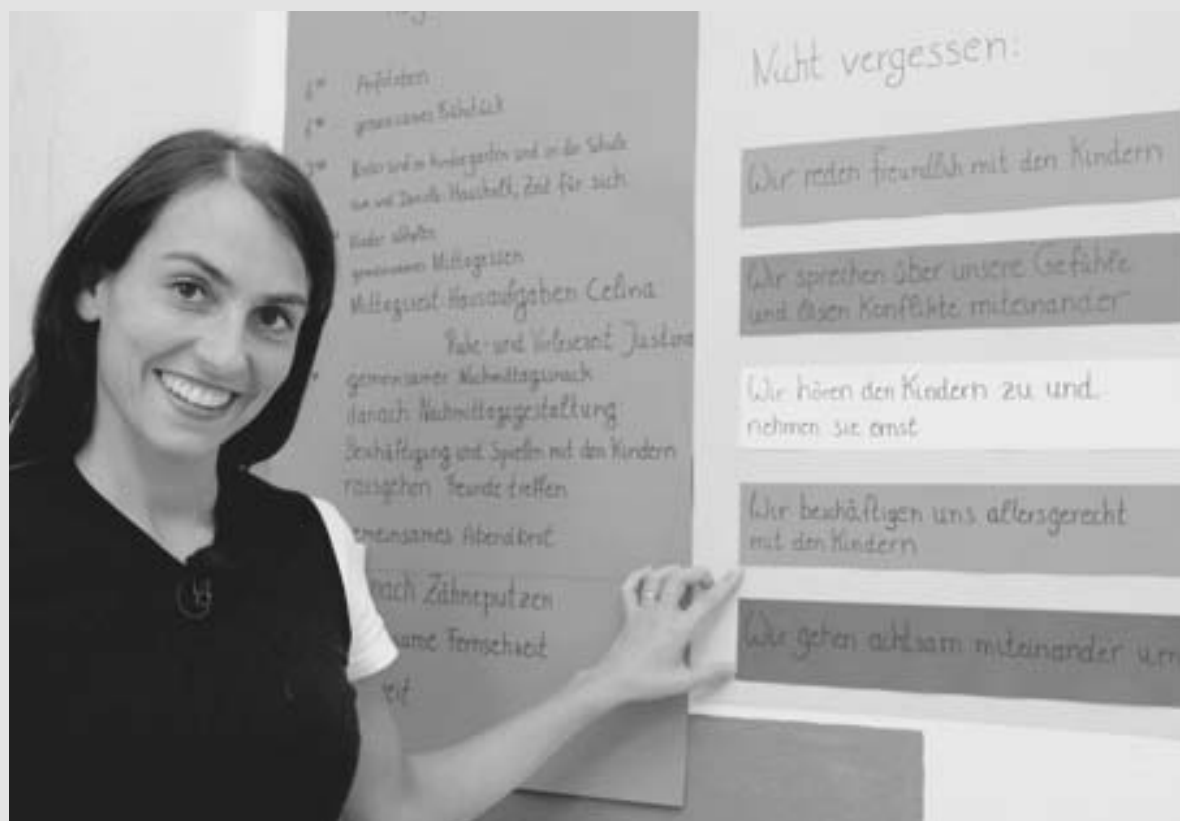 Aufstehen
gemeinsames Frühstück
Kinder sind im Kindergarten und in der Schule
und Haushalt, Zeit für sich
Kinder abholen
gemeinsames Mittagessen
Mittagszeit: Hausaufgaben Celina
Ruhe- und Vorlesezeit Justine
gemeinsamer Nachmittagsnack
danach Nachmittagsgestaltung
Beschäftigung und Spielen mit den Kindern
rausgehen Freunde treffen
emeinsames Abendbrot
nach Zähneputzen
same Fernsehzeit
eit
Nicht vergessen:
Wir reden freundlich mit den Kindern
Wir sprechen über unsere Gefühle
und lösen Konflikte miteinander
Wir hören den Kindern zu und
nehmen sie ernst
Wir beschäftigen uns altersgerecht
mit den Kindern
Wir gehen achtsam miteinander um